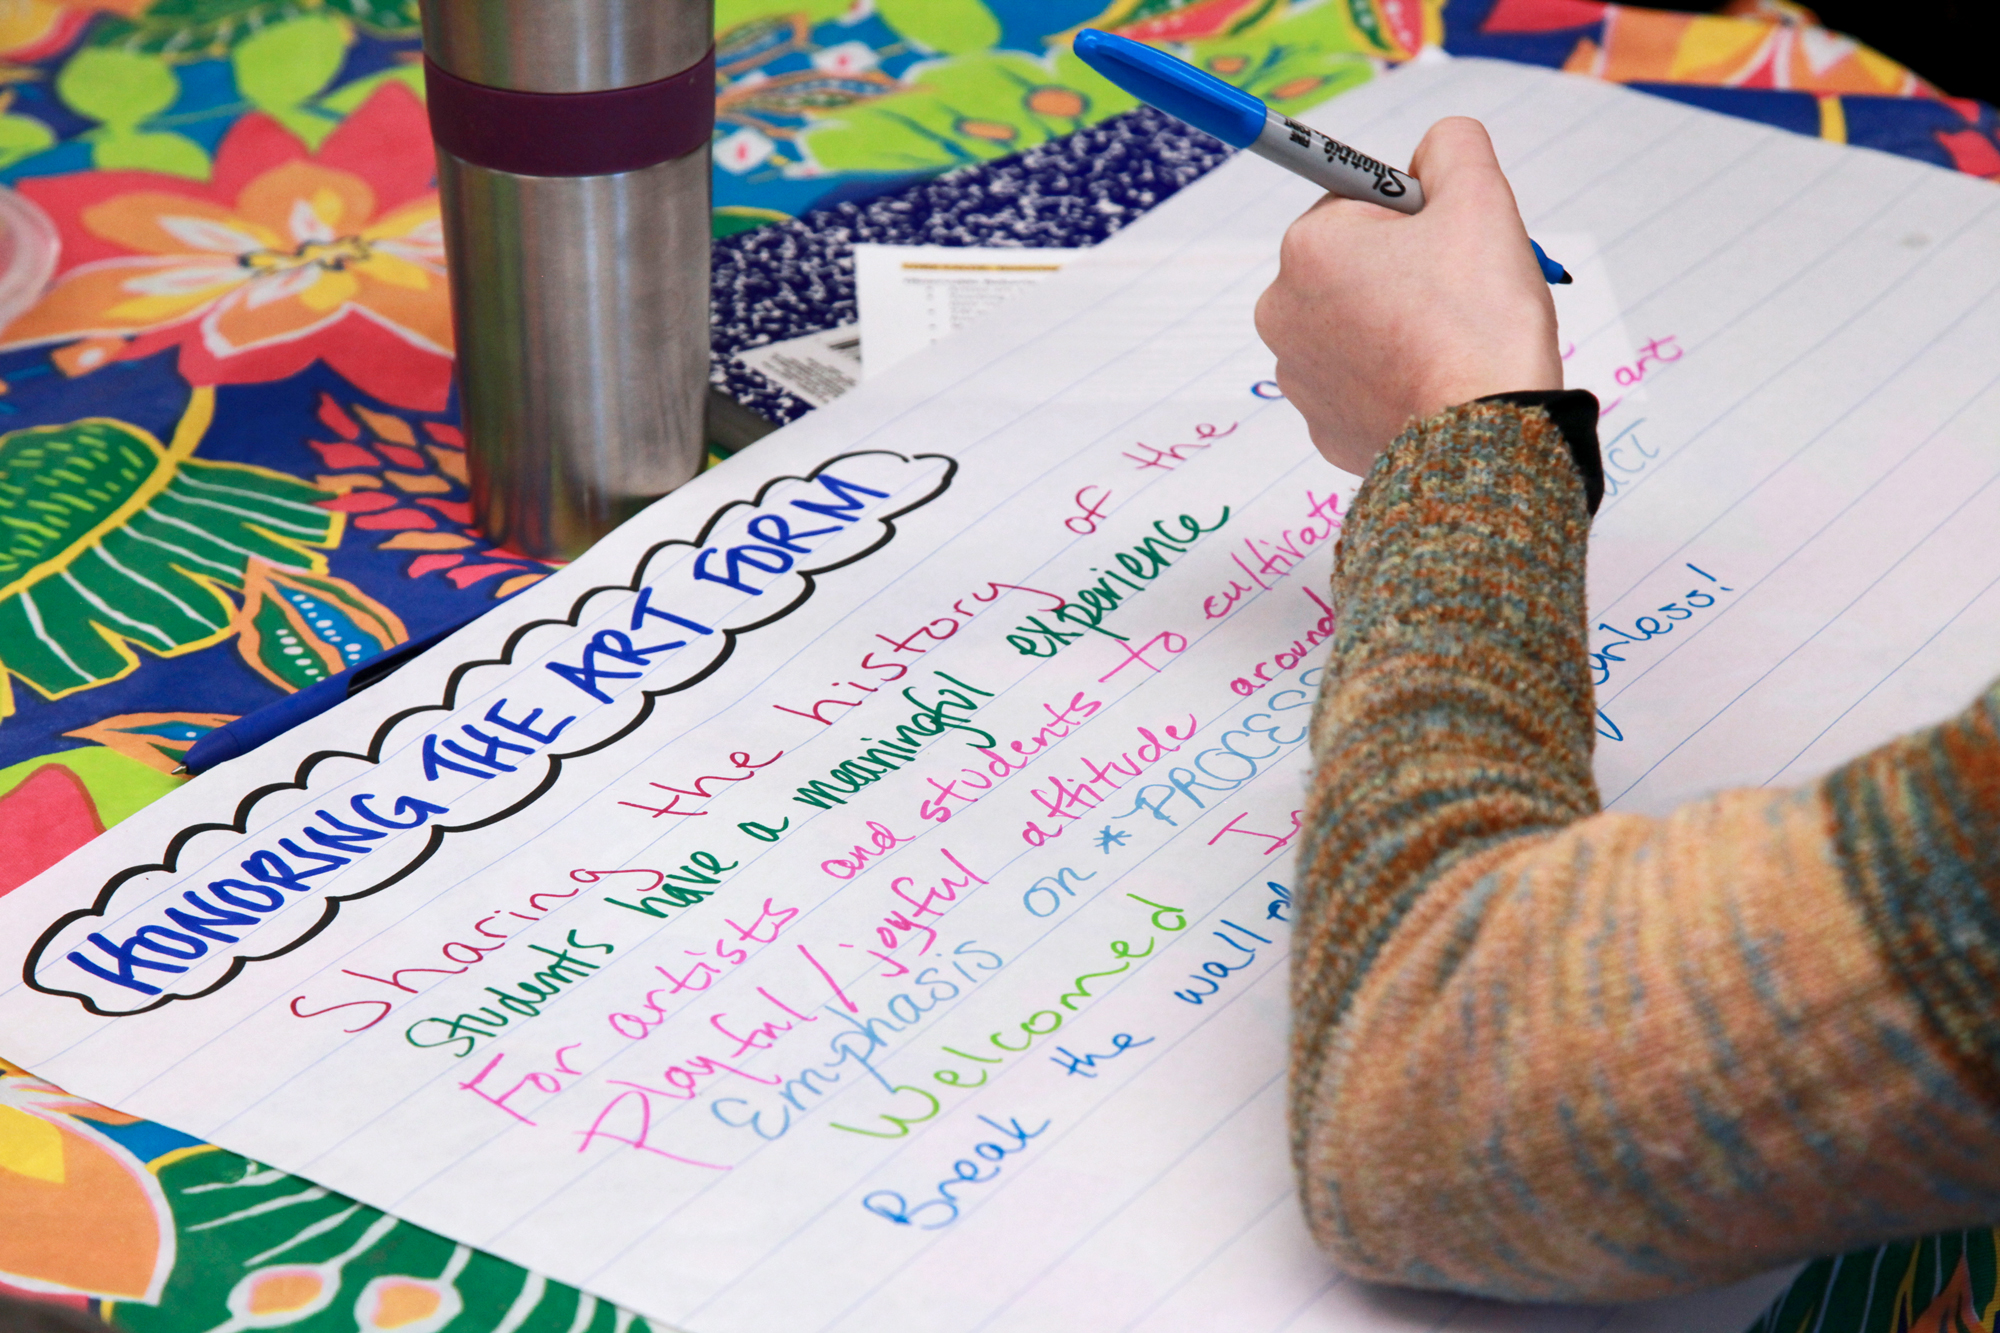 HONORING THE ART FORM
Sharing the history of the
Students have a meaningful experience
For artists and students to cultivate
Playful / joyful attitude around art
Emphasis on *PROCESS
Welcomed
Break the wall
Sharpie